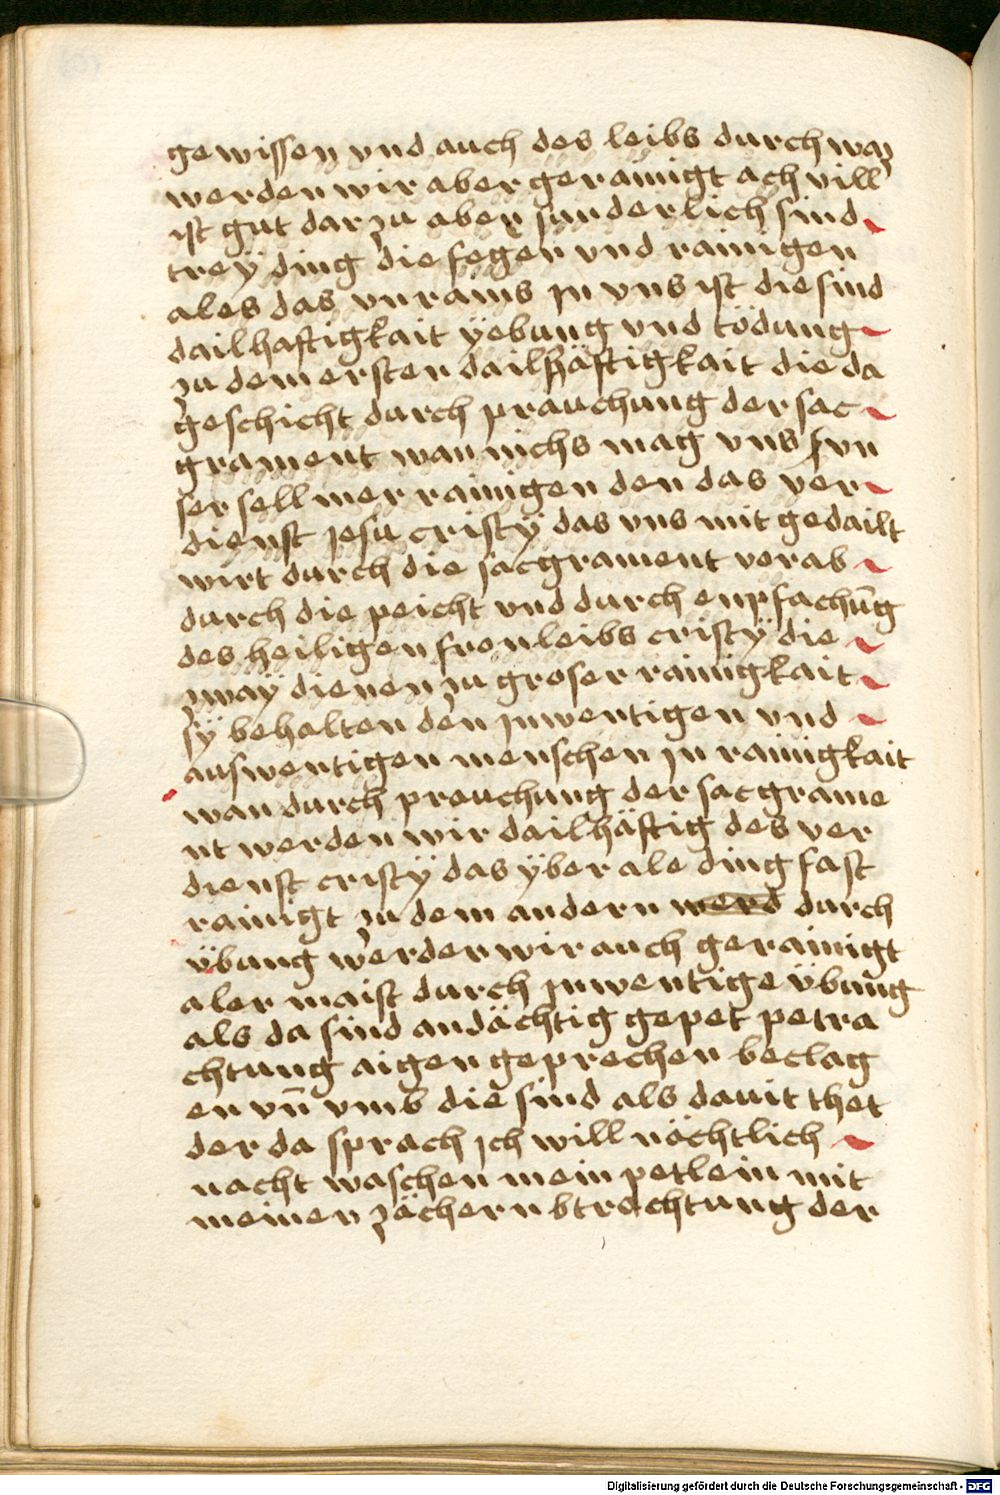 gewissen vnd auch des leibs durch waz
werden wir aber gerainigt ach vill
ist gut dar zu aber sunderlich sind
treÿ ding die fegen vnd rainigen
ales das vnrains jn vns ist die sind
dailhaftigkait ÿebung vnd tödung
zu dem ersten dailhäftigkait die da
geschicht durch prauchung der sac
grament wan nichs mag vns vn
ser sell mer rainigen den das ver
dienst jesu cristÿ das vns mit gedailt
wirt durch die sacgrament vorab
durch die peicht vnd durch enpfachūg
des heiligen fronleibs cristÿ die
zwaÿ dienen zu groser rainigkait
sÿ behalten den jnwentigen vnd
auswentigen menschen jn rainigkait
wan durch preuchung der sacgrame
nt werden wir dailhäftig des ver
dienst cristÿ das ÿber ale ding fast
rainigt zu dem andern werd durch
übung werden wir auch gerainigt
aler maist durch jnwentige übung
als da sind andächtig gepet petra
chtung aigen geprechen beclag
en vn̄ vmb die sind als dauit thet
der da sprach jch will nächtlich
nacht waschen mein petlein mit
meinen zächern btrachtung der
Digitalisierung gefördert durch die Deutsche Forschungsgemeinschaft - DFG